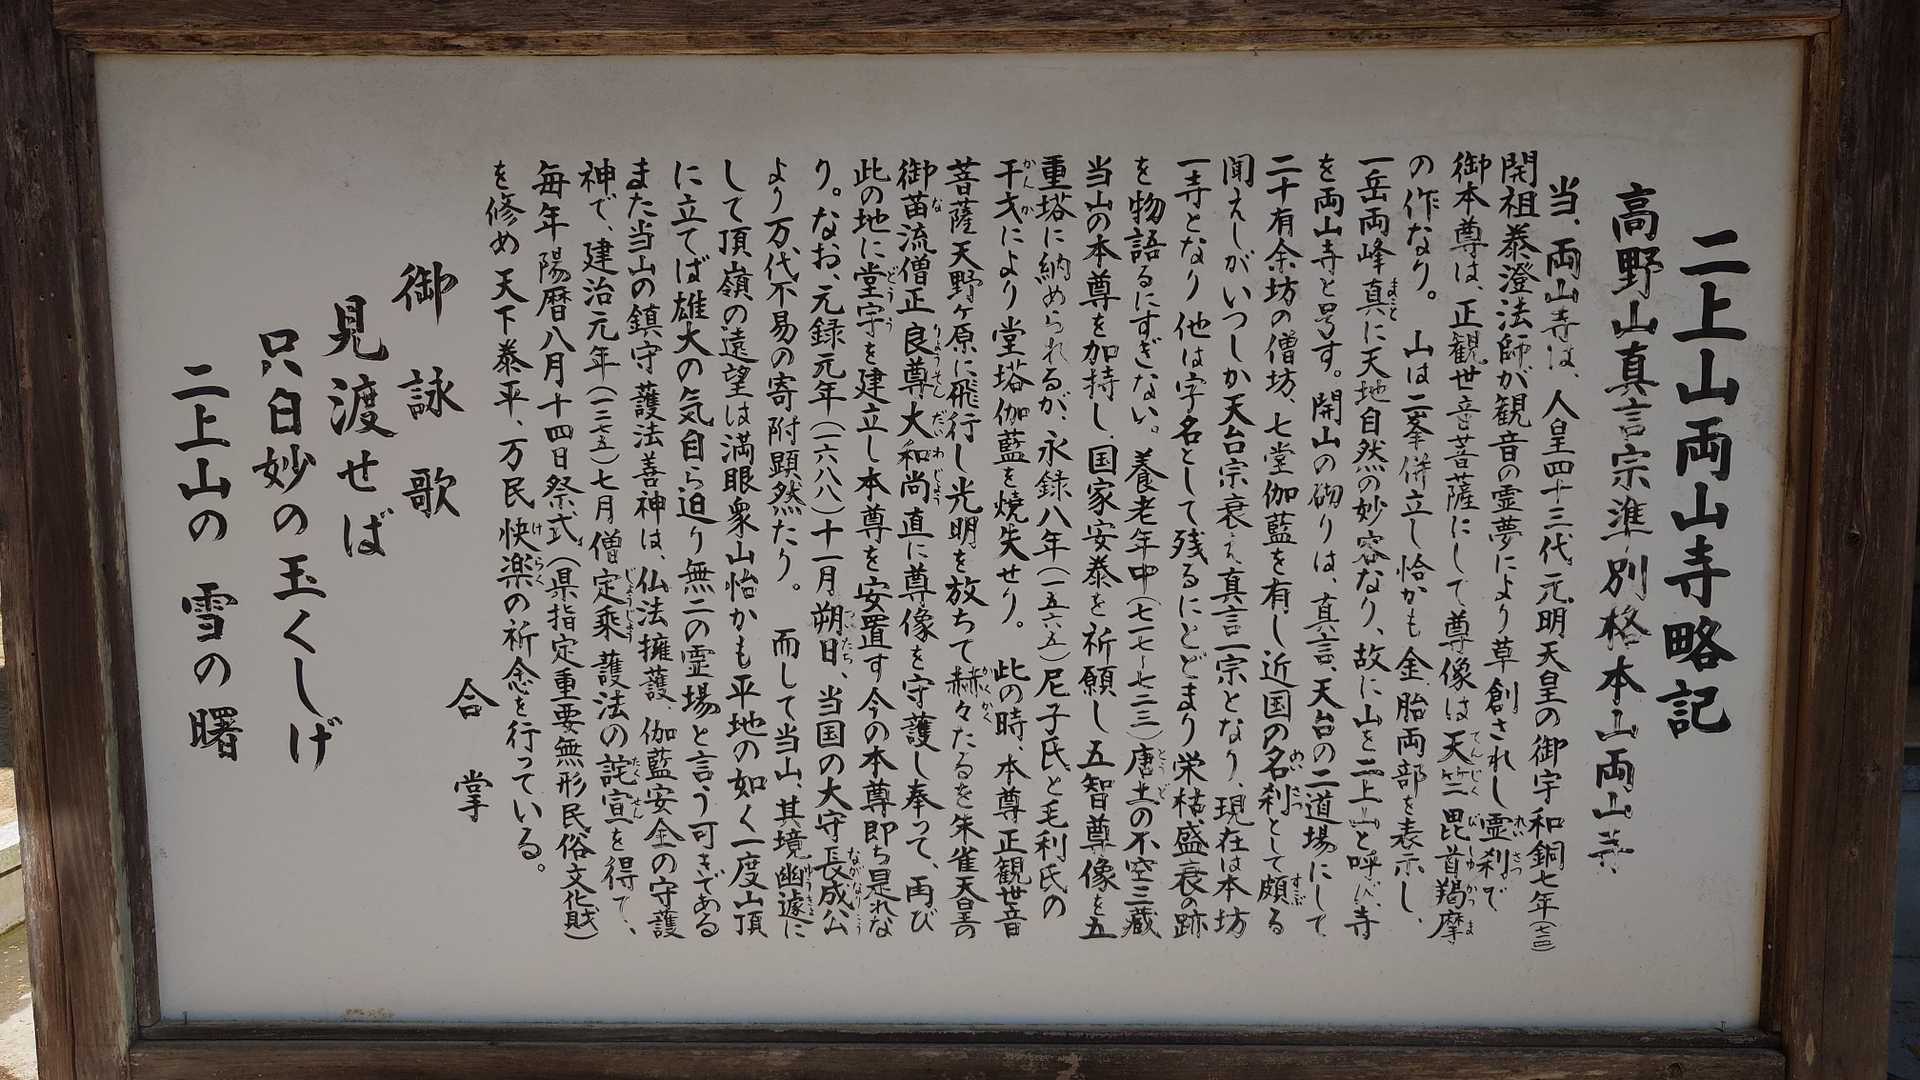 二上山両山寺略記
高野山真言宗準別格本山両山寺
当、両山寺は、人皇四十三代元明天皇の御宇和銅七年(七一四)
開祖泰澄法師が観音の霊夢により草創されし霊刹で
御本尊は、正観世音菩薩にして尊像は天竺毘首羯摩
の作なり。　山は二峯併立し恰かも金胎両部を表示し、
一岳両峰真に天地自然の妙容なり、故に山を二上山と呼び、寺
を両山寺と号す。開山の砌りは、真言、天台の二道場にして
二十有余坊の僧坊、七堂伽藍を有し近国の名刹として頗る
聞えしがいつしか天台宗衰え真言一宗となり、現在は本坊
一寺となり他は字名として残るにとどまり栄枯盛衰の跡
を物語るにすぎない。養老年中(七一七〜七二三)唐土の不空三蔵
当山の本尊を加持し国家安泰を祈願し五智尊像を五
重塔に納められるが、永録八年(一五六五)尼子氏と毛利氏の
干戈により堂塔伽藍を焼失せり。　此の時、本尊正観世音
菩薩天野ヶ原に飛行し光明を放ちて赫々たるを朱雀天皇の
御苗流僧正良尊大和尚直に尊像を守護し奉って、再び
此の地に堂宇を建立し本尊を安置す今の本尊即ち是れな
り。なお、元録元年(一六八八)十一月朔日、当国の大守長成公
より万代不易の寄附顕然たり。　而して当山、其境幽邃に
して頂嶺の遠望は満眼衆山恰かも平地の如く一度山頂
に立てば雄大の気自ら迫り無二の霊場と言う可きである
また当山の鎮守護法善神は、仏法擁護、伽藍安全の守護
神で、建治元年(一二七五)七月僧定乗護法の託宣を得て、
毎年陽暦八月十四日祭式(県指定重要無形民俗文化財)
を修め天下泰平、万民快楽の祈念を行っている。
合掌
御詠歌
見渡せば
只白妙の玉くしげ
二上山の　雪の曙